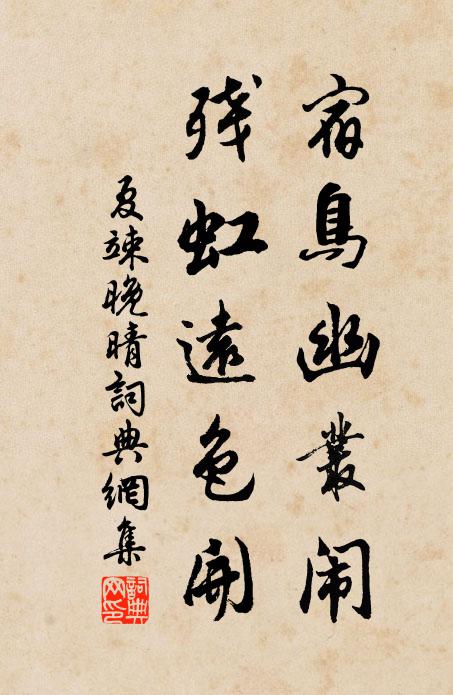 宿鳥幽叢闹
残虹遠色開
夏竦晚晴詞典網集
詞典
网印